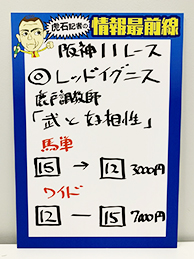 虎石記者の情報最前線
阪神11レース
◎レッドイグニス
虎戸調教師
「武と好相性」
馬単
15 → 12 3000円
ワイド
12 — 15 7000円